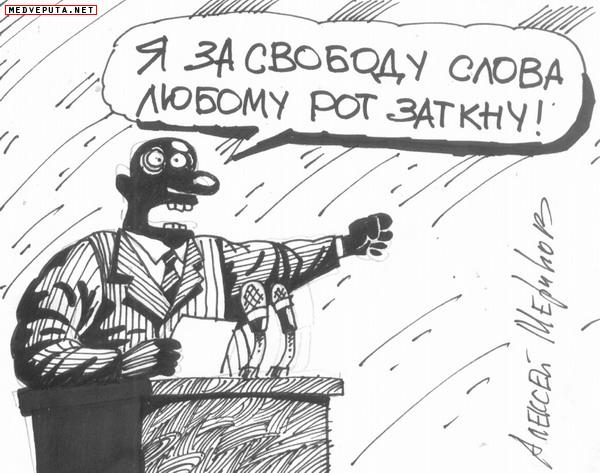 MEDVEPUTA.NET
Я ЗА СВОБОДУ СЛОВА
ЛЮБОМУ РОТ ЗАТКНУ!
АЛЕКСЕЙ МЕРИНОВ